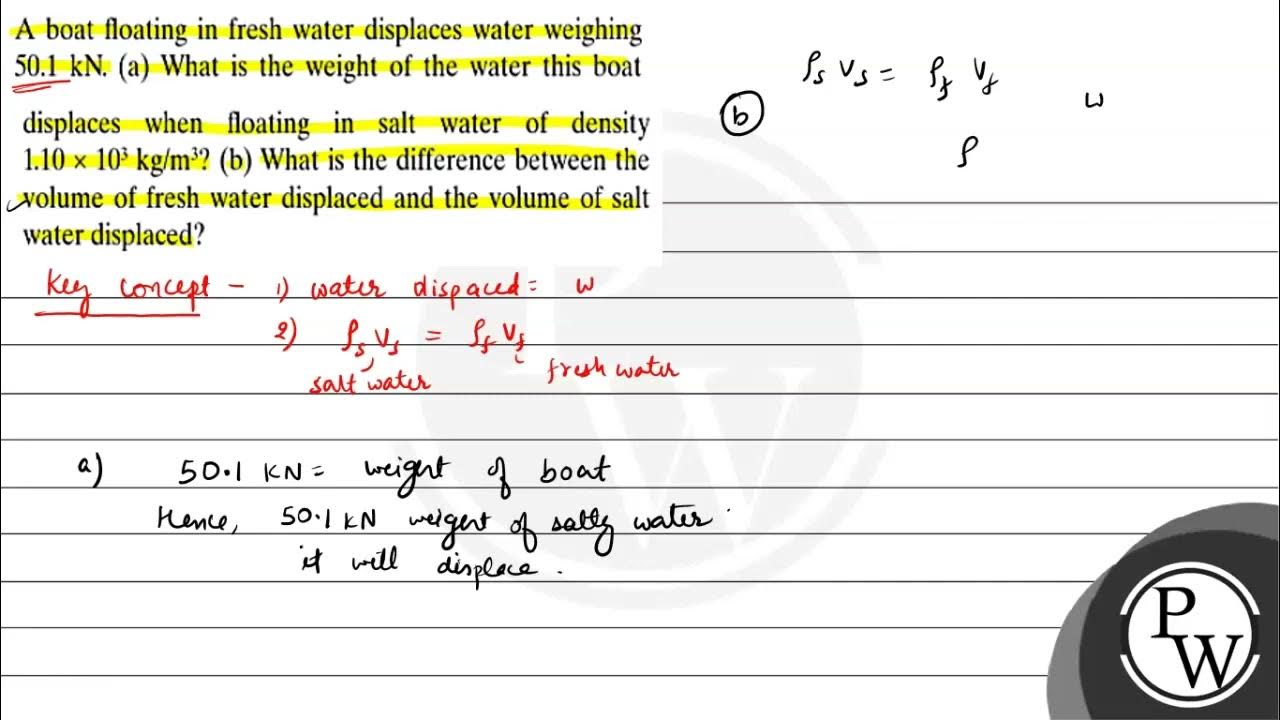 A boat floating in fresh water displaces water weighing
50.1 kN. (a) What is the weight of the water this boat
displaces when floating in salt water of density
1.10 × 10³ kg/m³? (b) What is the difference between the
volume of fresh water displaced and the volume of salt
water displaced?
Key concept - 1) water dispaced = w
2) ρₛ Vₛ = ρ_f V_f
salt water
fresh water
a) 50.1 KN = weight of boat
Hence, 50.1 KN weigent of salty water
it will displace.
(b) ρₛ Vₛ = ρ_f V_f
w
ρ
PW
PW